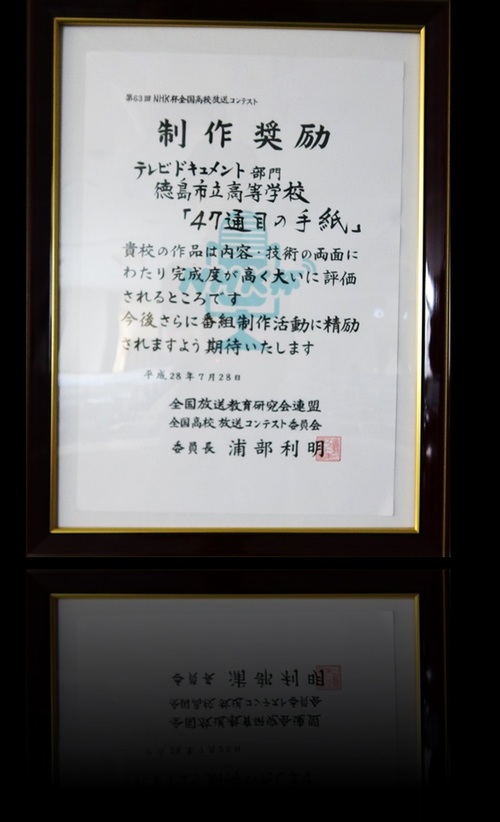 第63回 NHK杯全国高校放送コンテスト
制作奨励
テレビドキュメント部門
徳島市立高等学校
「47通目の手紙」
貴校の作品は内容・技術の両面に
わたり完成度が高く大いに評価
されるところです
今後さらに番組制作活動に精励
されますよう期待いたします
平成28年7月28日
全国放送教育研究会連盟
全国高校放送コンテスト委員会
委員長 浦部利明